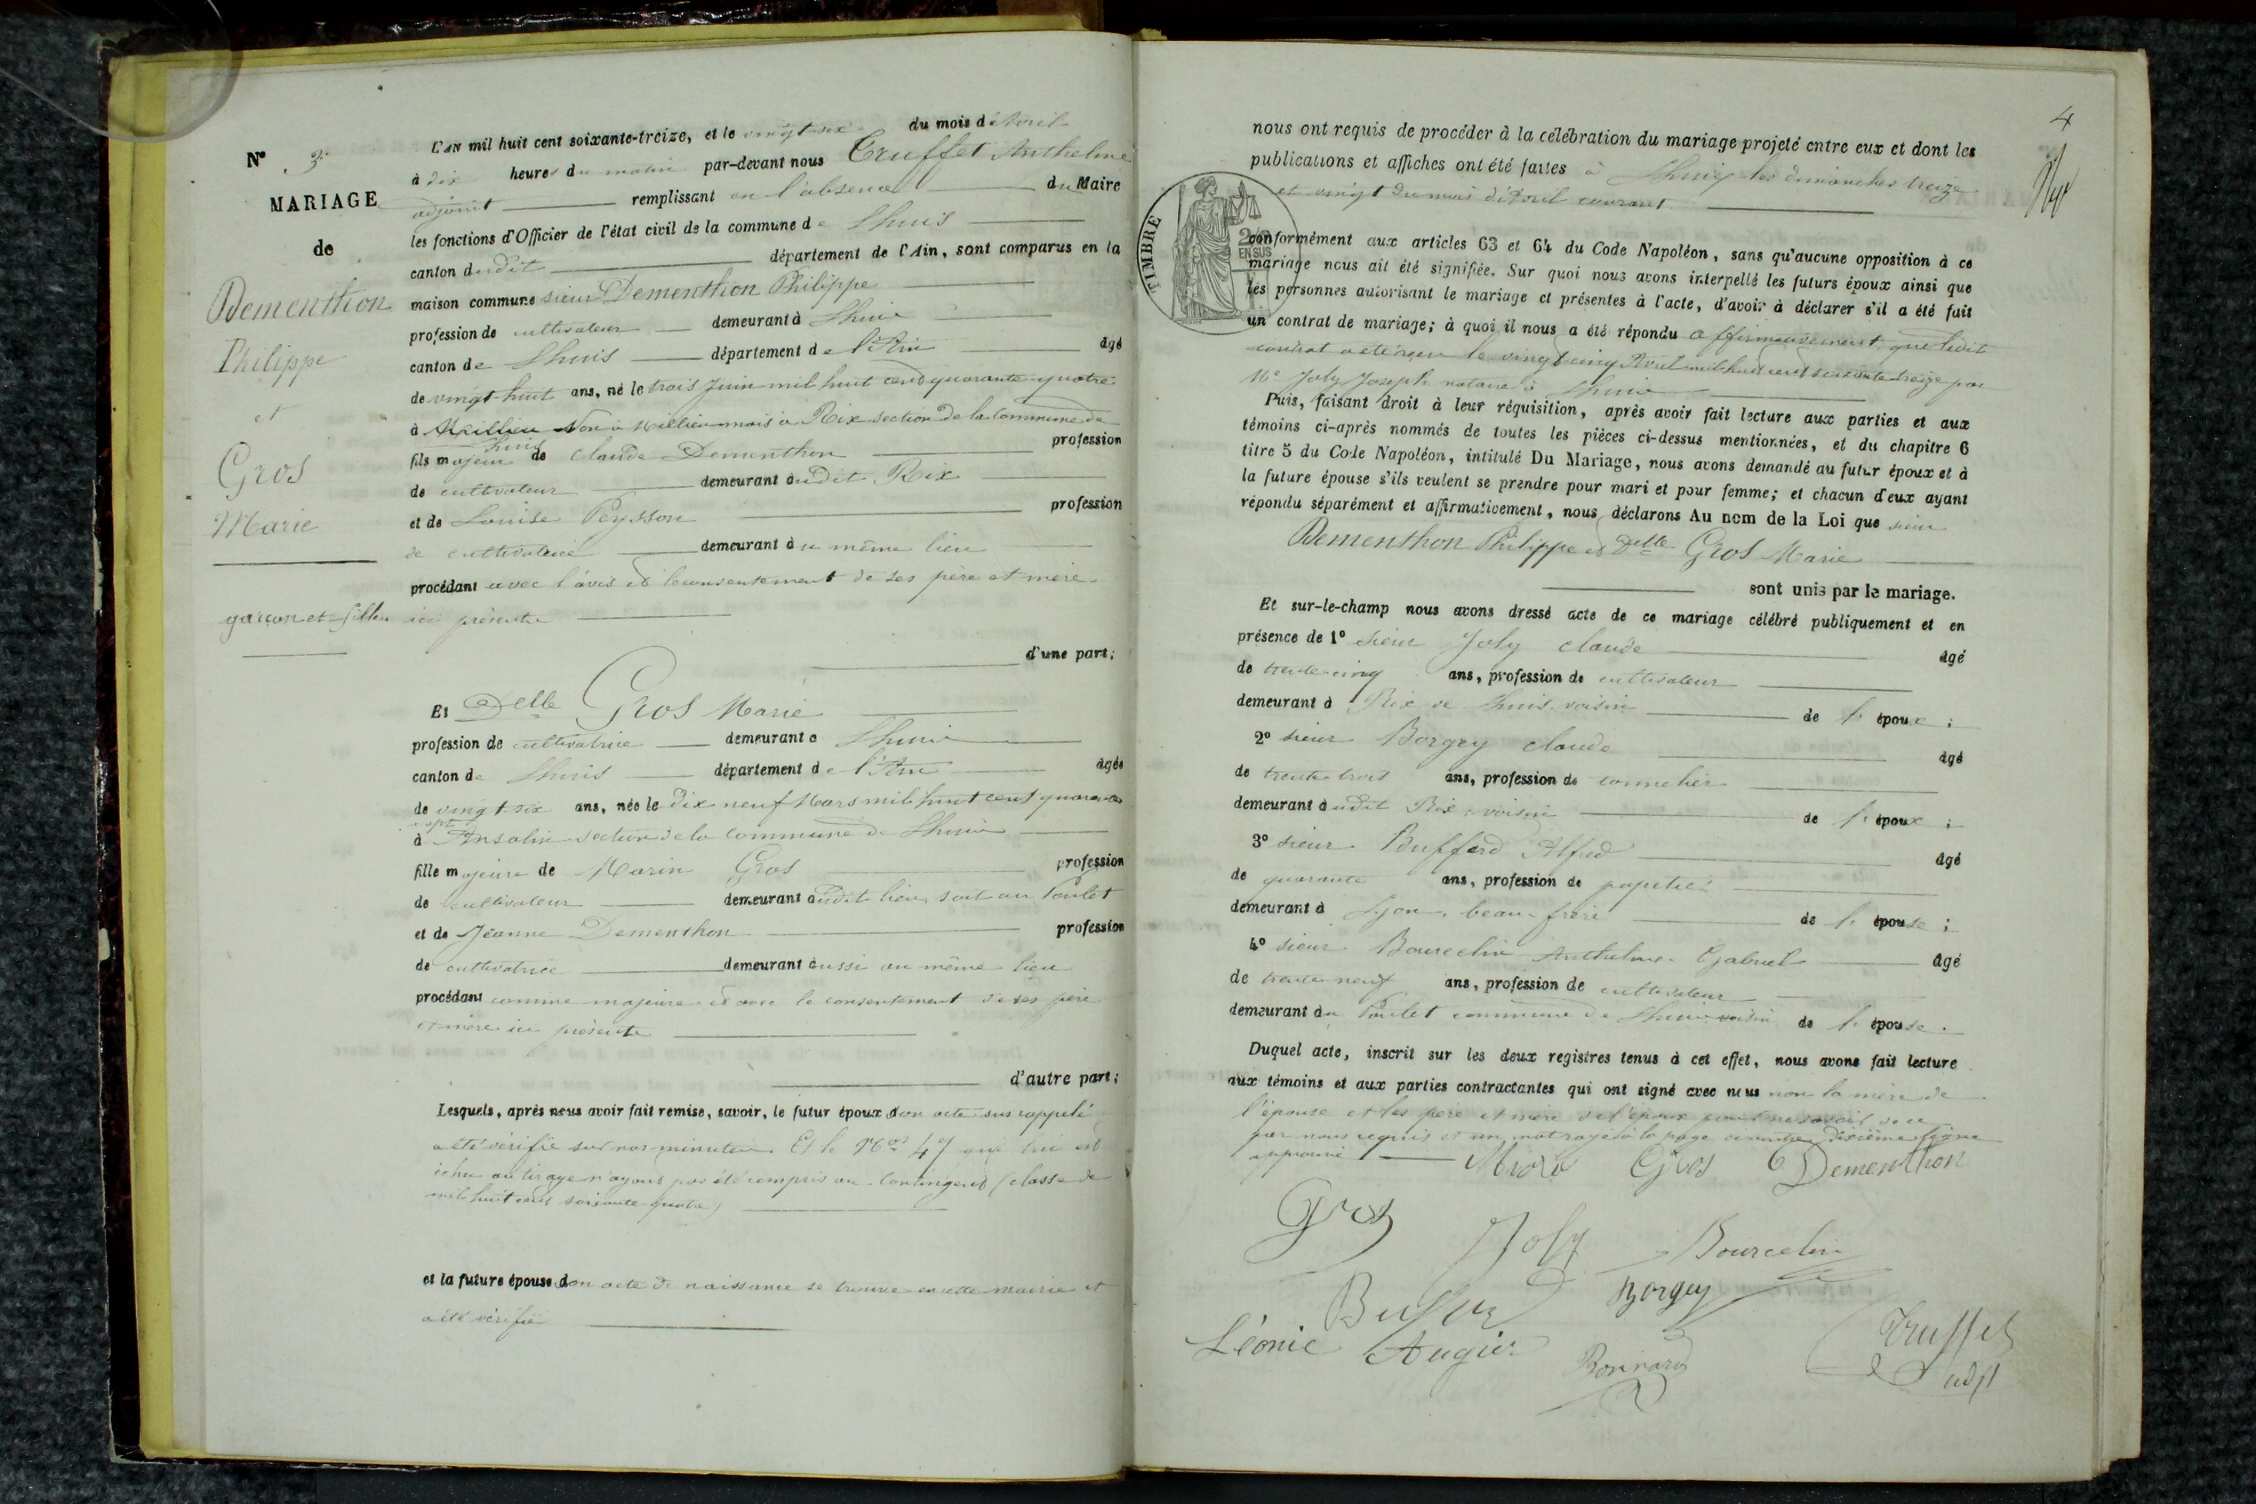 N° 3
MARIAGE
de
Dementhon
Philippe
et
Gros
Marie
garçon et fille
L'AN mil huit cent soixante-treize, et le vingt six du mois d'Avril
à dix heures du matin par-devant nous Truffet Anthelme
adjoint remplissant en l'absence du Maire
les fonctions d'Officier de l'état civil de la commune de Lhuis
canton dudit département de l'Ain, sont comparus en la
maison commune sieur Dementhon Philippe
profession de cultivateur demeurant à Lhuis
canton de Lhuis département de l'Ain âgé
de vingt-huit ans, né le trois Juin mil huit cent quarante quatre
à Millieu Non à Millieu mais à Rix section de la Commune de
Lhuis
fils majeur de Claude Dementhon profession
de cultivateur demeurant audit Rix
et de Louise Peysson profession
de cultivatrice demeurant au même lieu
procédant avec l'avis et le consentement de ses père et mère
ici présents
d'une part;
Et Delle Gros Marie
profession de cultivatrice demeurant à Lhuis
canton de Lhuis département de l'Ain âgée
de vingt six ans, née le dix neuf Mars mil huit cent quarante
sept
à Ansolin section de la commune de Lhuis
fille majeure de Marin Gros profession
de cultivateur demeurant audit lieu, soit au Poulet
et de Jeanne Dementhon profession
de cultivatrice demeurant aussi au même lieu
procédant comme majeure et avec le consentement de ses père
et mère ici présents
d'autre part;
Lesquels, après nous avoir fait remise, savoir, le futur époux son acte sus rappelé
a été vérifié sur nos minutes. Et le N° 47 qui lui est
échu au tirage n'ayant pas été compris au Contingent (classe de
mil huit cent soixante quatre)
et la future épouse son acte de naissance se trouve en cette mairie et
a été vérifié
4
nous ont requis de procéder à la célébration du mariage projeté entre eux et dont les
publications et affiches ont été faites à Lhuis les dimanches treize
et vingt du mois d'Avril courant
TIMBRE
2/10
EN SUS
conformément aux articles 63 et 64 du Code Napoléon, sans qu'aucune opposition à ce
mariage nous ait été signifiée. Sur quoi nous avons interpellé les futurs époux ainsi que
les personnes autorisant le mariage et présentes à l'acte, d'avoir à déclarer s'il a été fait
un contrat de mariage; à quoi il nous a été répondu affirmativement que ledit
contrat a été reçu le vingt cinq Avril mil huit cent soixante treize par
Me Joly Joseph notaire à Lhuis
Puis, faisant droit à leur réquisition, après avoir fait lecture aux parties et aux
témoins ci-après nommés de toutes les pièces ci-dessus mentionnées, et du chapitre 6
titre 5 du Code Napoléon, intitulé Du Mariage, nous avons demandé au futur époux et à
la future épouse s'ils veulent se prendre pour mari et pour femme; et chacun d'eux ayant
répondu séparément et affirmativement, nous déclarons Au nom de la Loi que sieur
Dementhon Philippe et Delle Gros Marie
sont unis par le mariage.
Et sur-le-champ nous avons dressé acte de ce mariage célébré publiquement et en
présence de 1° sieur Joly Claude âgé
de trente-cinq ans, profession de cultivateur
demeurant à Rix de Lhuis, voisin de l'époux;
2° sieur Borgey Claude âgé
de trente trois ans, profession de tonnelier
demeurant audit Rix, voisin de l'époux;
3° sieur Buffard Alfred âgé
de quarante ans, profession de papetier
demeurant à Lyon, beau-frère de l'épouse;
4° sieur Bourcelin Anthelme Gabriel âgé
de trente neuf ans, profession de cultivateur
demeurant au Poulet commune de Lhuis voisin de l'épouse.
Duquel acte, inscrit sur les deux registres tenus à cet effet, nous avons fait lecture
aux témoins et aux parties contractantes qui ont signé avec nous non la mère de
l'épouse et les père et mère de l'époux pour ne savoir de ce
par nous requis et un mot rayé à la page dixième ligne
approuvé Marie Gros Dementhon
Gros Joly Bourcelin
Borgey
Léonie Augier Bonnard Truffet
adjt